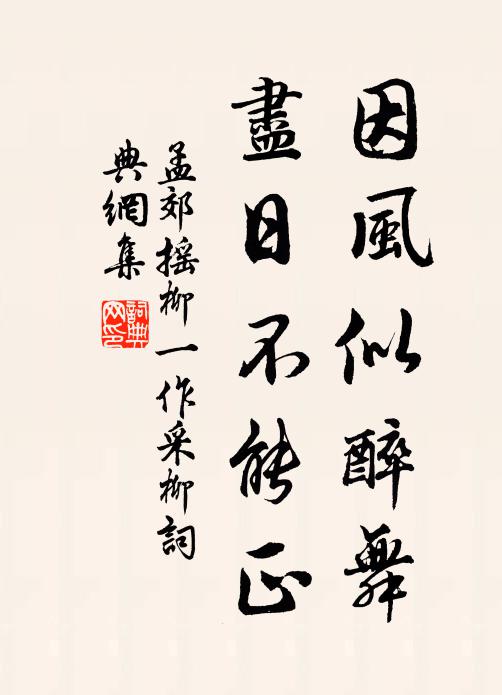 因風似醉舞
盡日不能正
孟郊摇柳一作采柳詞
典網集
詞典网印